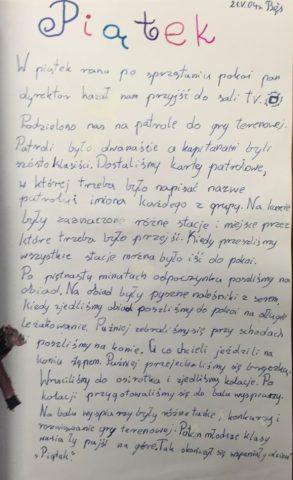 21.V.04r.
Piątek
W piątek rano po sprzątaniu pokoi pan
dyrektor kazał nam przyjść do sali tv.
Podzielono nas na patrole do gry terenowej.
Patroli było dwanaście a kapitanami byli
szósto klasiści. Dostaliśmy kartę patrolowe,
w której trzeba było napisać nazwe
patrolu i imiona każdego z grupy. Na karcie
były zaznaczone różne stacje i miejsce przez
które trzeba było przejść. Kiedy przeszliśmy
wszystkie stacje można było iść do pokoi.
Po piętnastu minutach odpoczynku poszliśmy na
obiad. Na obiad były pyszne naleśniki z serem.
Kiedy zjedliśmy obiad poszliśmy do pokoi na długie
leżakowanie. Puźniej zebraliśmy się przy schodach
i poszliśmy na konie. Ci co chcieli jeździli na
koniu stępem. Puźniej przejechaliśmy się bryczką.
Wróciliśmy do ośrodka i zjedliśmy kolacje. Po
kolacji przygotowaliśmy się do balu
Na balu były różne tańce, konkursy i
rozwiązanie gry terenowej. Potem młodsze klasy
na górę. Tak skończył się wspaniały dzień
"Piątek"